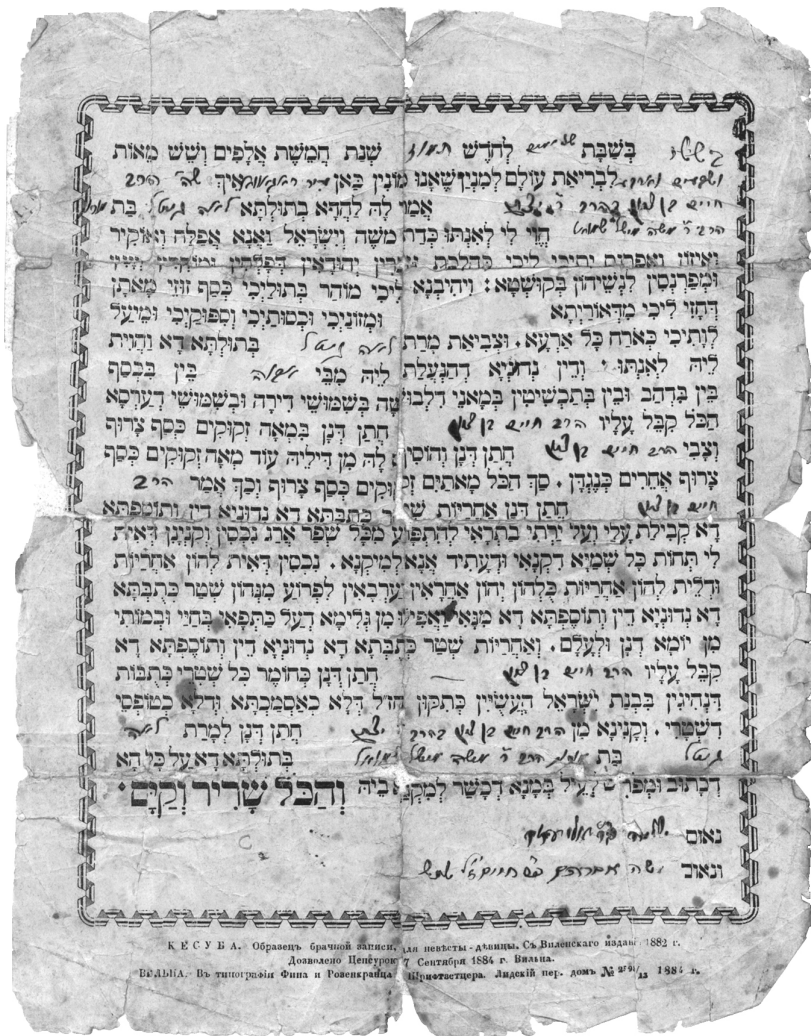 בששי בְּשַׁבָּת לְחֹדֶשׁ תמוז שְׁנַת חֲמֵשֶׁת אֲלָפִים וְשֵׁשׁ מֵאוֹת
לִבְרִיאַת עוֹלָם לְמִנְיָן שֶׁאָנוּ מוֹנִין כַּאן אֵיךְ הרב
חיים בן ציון בהרב אֲמַר לָהּ לַהֲדָא בְתוּלְתָּא לאה גיטל בַּת
הרב ר' משה הֲוֵי לִי לְאִנְתּוּ כְּדַת מֹשֶׁה וְיִשְׂרָאֵל וַאֲנָא אֶפְלַח וְאוֹקִיר
וְאֵיזוֹן וַאֲפַרְנֵס יָתִיכִי לִיכִי כְּהִלְכַת גּוּבְרִין יְהוּדָאִין דְּפָלְחִין וּמוֹקְרִין וְזָנִין
וּמְפַרְנְסִין לִנְשֵׁיהוֹן בְּקוּשְׁטָא: וִיהִיבְנָא לִיכִי מוֹהַר בְּתוּלַיְכִי כְּסַף זוּזֵי מָאתָן
דְּחָזֵי לִיכִי מִדְּאוֹרַיְתָא וּמְזוֹנַיְכִי וּכְסוּתַיְכִי וְסִפּוּקַיְכִי וּמֵיעַל
לְוָתֵיכִי כְּאֹרַח כָּל אַרְעָא. וּצְבִיאַת מָרַת לאה גיטל בְּתוּלְתָּא דָא וַהֲוָית
לֵיהּ לְאִנְתּוּ. וְדֵין נְדוּנְיָא דְּהַנְעֲלַת לֵיהּ מִבֵּי אבוה בֵּין בִּכְסַף
בֵּין בִּדְהַב וּבֵין בְּתַכְשִׁיטִין בְּמָאנֵי דִלְבוּשָׁה בְּשִׁמּוּשֵׁי דִירָה וּבְשִׁמּוּשֵׁי דְעַרְסָא
הַכֹּל קִבֵּל עָלָיו הרב חיים בן ציון חֲתַן דְּנָן בְּמֵאָה זְקוּקִים כְּסַף צָרוּף
וְצָבִי הרב חיים בן ציון חֲתַן דְּנָן וְהוֹסִיף לָהּ מִן דִּילֵיהּ עוֹד מֵאָה זְקוּקִים כְּסַף
צָרוּף אֲחֵרִים כְּנֶגְדָּן. סַךְ הַכֹּל מָאתַיִם זְקוּקִים כְּסַף צָרוּף וְכָךְ אָמַר הרב
חיים בן ציון חֲתַן דְּנָן אַחֲרָיוּת שְׁטַר כְּתֻבְּתָּא דָא נְדוּנְיָא דֵין וְתוֹסֶפְתָּא
דָא קַבִּילַת עָלַי וְעַל יָרְתֵי בַתְרָאִי לְהִתְפָּרַע מִכָּל שְׁפַר אֲרַג נִכְסִין וְקִנְיָנִין דְּאִית
לִי תְּחוֹת כָּל שְׁמַיָּא דִּקְנַאי וּדְעָתִיד אֲנָא לְמִיקְנָא. נִכְסִין דְּאִית לְהוֹן אַחֲרָיוּת
וּדְלֵית לְהוֹן אַחֲרָיוּת כֻּלְּהוֹן יְהוֹן אַחֲרָאִין וְעַרְבָאִין לִפְרוֹעַ מִנְּהוֹן שְׁטַר כְּתֻבְּתָּא
דָא נְדוּנְיָא דֵין וְתוֹסֶפְתָּא דָא מִנַּאי וַאֲפִילוּ מִן גְּלִימָא דְּעַל כַּתְפָּאִי בְּחַיַּי וּבְמוֹתִי
מִן יוֹמָא דְנָן וּלְעָלַם. וְאַחֲרָיוּת שְׁטַר כְּתֻבְּתָּא דָא נְדוּנְיָא דֵין וְתוֹסֶפְתָּא דָא
קִבֵּל עָלָיו הרב חיים בן ציון חֲתַן דְּנָן כְּחוֹמֶר כָּל שִׁטְרֵי כְּתֻבּוֹת
דְּנָהֲגִין בִּבְנַת יִשְׂרָאֵל הָעֲשׂוּיִין כְּתִקּוּן חז״ל דְּלָא כְאַסְמַכְתָּא וּדְלָא כְטוֹפְסֵי
דִשְׁטָרֵי. וְקָנִינָא מִן הרב חיים בן ציון בהרב חֲתַן דְּנָן לְמָרַת לאה
גיטל בַּת הרב ר' משה בְּתוּלְתָּא דָא עַל כָּל הָא
דְּכָתוּב וּמְפֹרָשׁ לְעֵיל בְּמָנָא דְכָשֵׁר לְמִקְנְיָא בֵיהּ וְהַכֹּל שָׁרִיר וְקַיָּם.
נאום
ונאום משה
КЕСУБА. Образецъ брачной записи, для невѣсты-дѣвицы. Съ Виленскаго издан. 1882 г.
Дозволено Цензурою 7 Сентября 1884 г. Вильна.
ВИЛЬНА. Въ типографіи Фина и Розенкранца Шрифтсетцера. Лидскій пер. домъ № 1884 г.